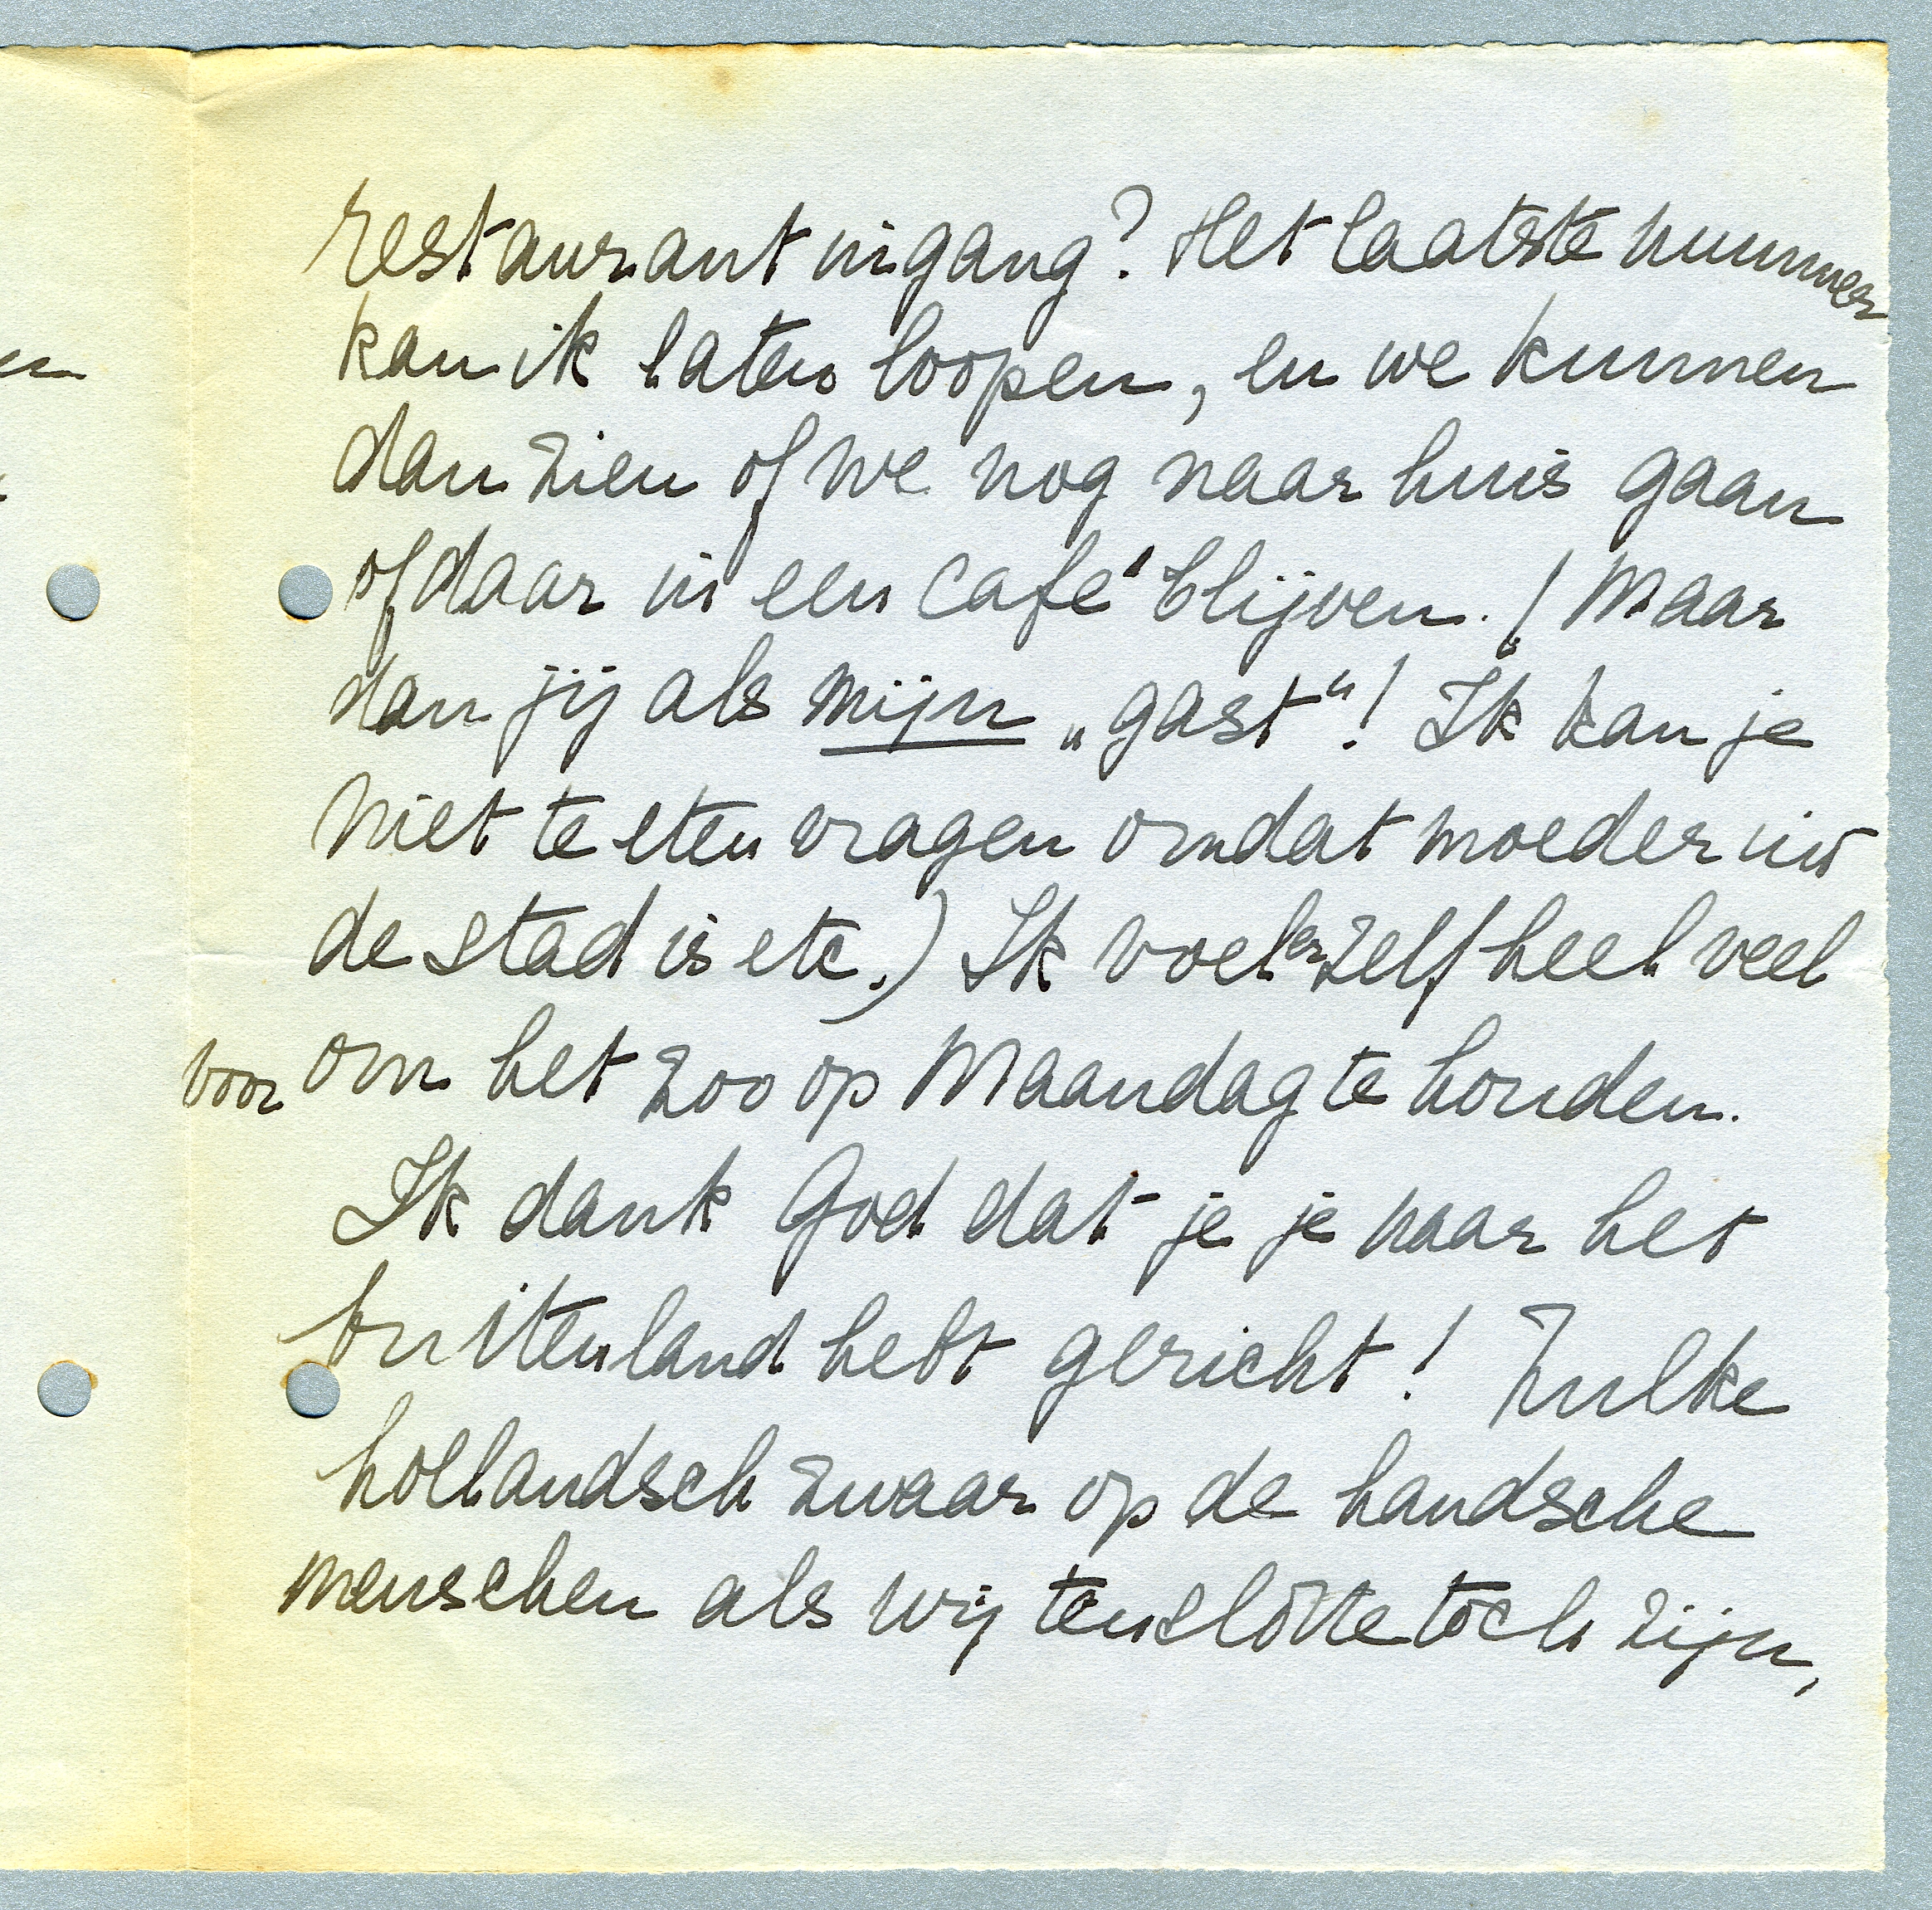 restaurant ingang? Het laatste nummer
kan ik laten loopen, en we kunnen
dan zien of we nog naar huis gaan
of daar in een café blijven. (Maar
dan jij als mijn „gast“! Ik kan je
niet te eten vragen omdat moeder in
de stad is etc.) Ik voel er zelf heel veel
voor om het zoo op Maandag te houden.
Ik dank God dat je je naar het
buitenland hebt gericht! Zulke
hollandsch zwaar op de handsche
menschen als wij tenslotte toch zijn,